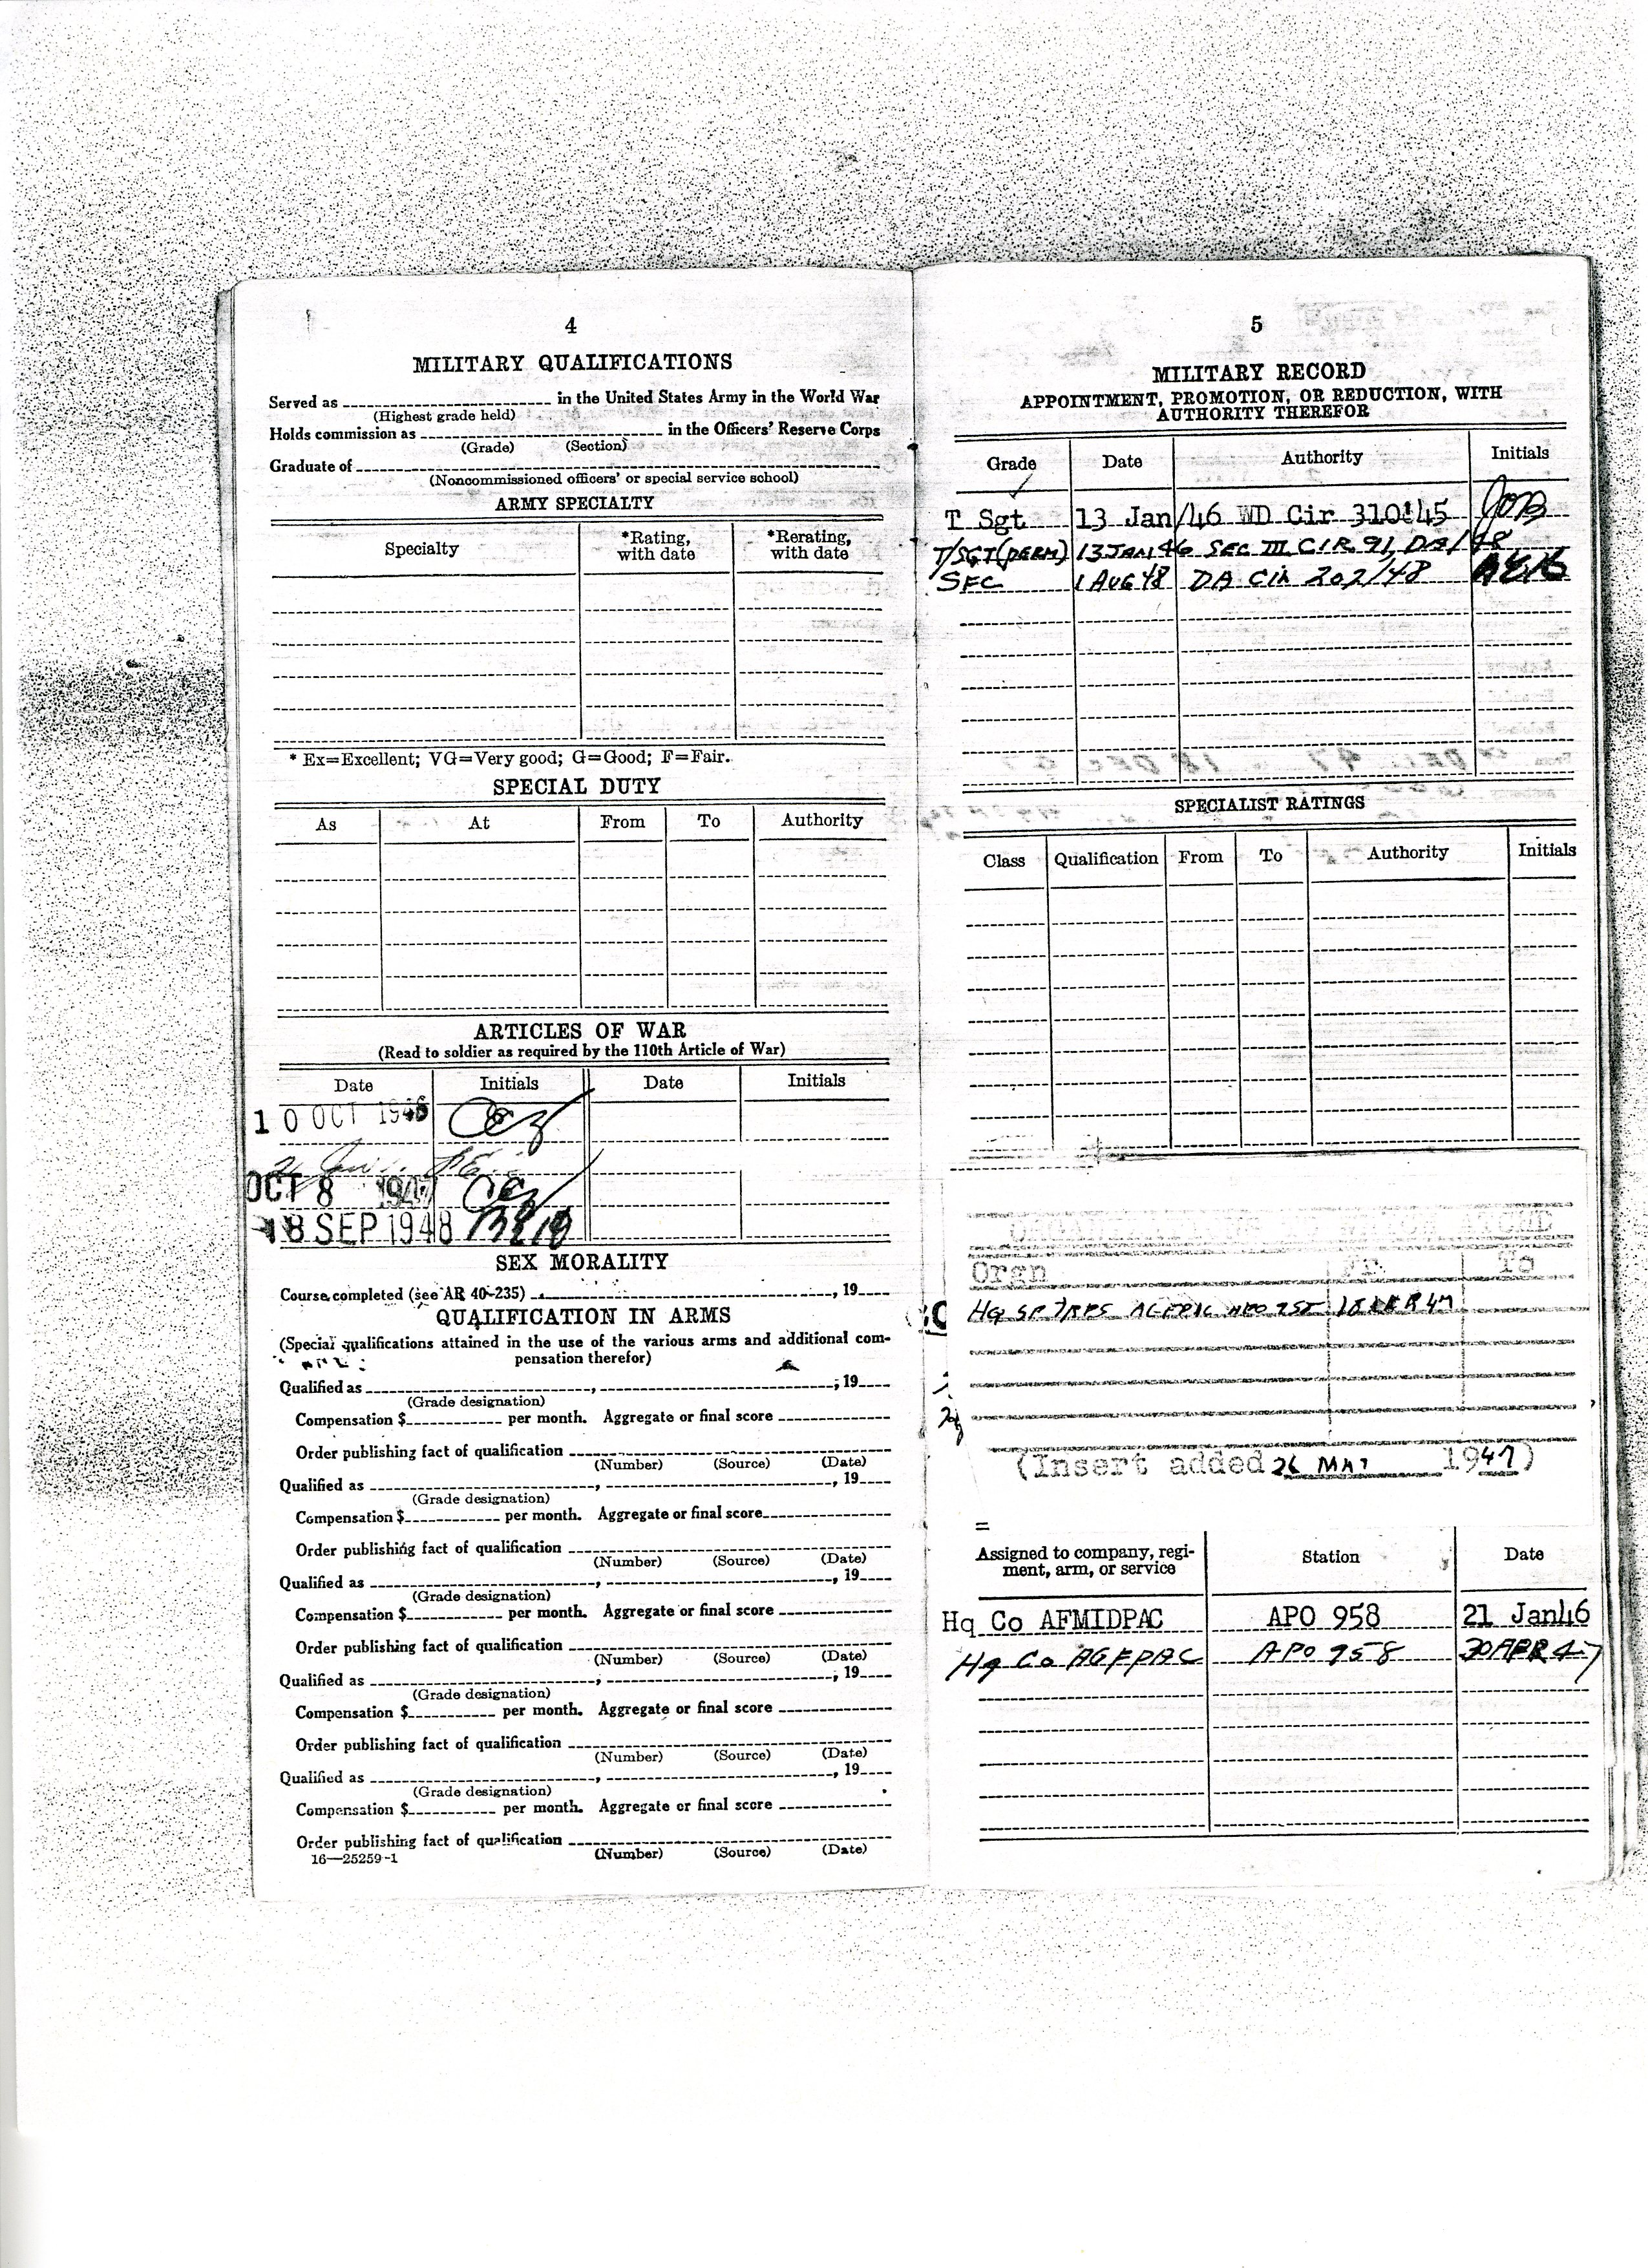 4
MILITARY QUALIFICATIONS
Served as in the United States Army in the World War
(Highest grade held)
Holds commission as in the Officers' Reserve Corps
(Grade) (Section)
Graduate of
(Noncommissioned officers' or special service school)
ARMY SPECIALTY
Specialty *Rating, with date *Rerating, with date
* Ex=Excellent; VG=Very good; G=Good; F=Fair.
SPECIAL DUTY
As At From To Authority
ARTICLES OF WAR
(Read to soldier as required by the 110th Article of War)
Date Initials Date Initials
10 OCT 1946
OCT 8 1947
18 SEP 1948
SEX MORALITY
Course completed (see AR 40-235) , 19
QUALIFICATION IN ARMS
(Special qualifications attained in the use of the various arms and additional com-
pensation therefor)
Qualified as , , 19
(Grade designation)
Compensation $ per month. Aggregate or final score
Order publishing fact of qualification
(Number) (Source) (Date)
Qualified as , , 19
(Grade designation)
Compensation $ per month. Aggregate or final score
Order publishing fact of qualification
(Number) (Source) (Date)
Qualified as , , 19
(Grade designation)
Compensation $ per month. Aggregate or final score
Order publishing fact of qualification
(Number) (Source) (Date)
Qualified as , , 19
(Grade designation)
Compensation $ per month. Aggregate or final score
Order publishing fact of qualification
(Number) (Source) (Date)
Qualified as , , 19
(Grade designation)
Compensation $ per month. Aggregate or final score
Order publishing fact of qualification
(Number) (Source) (Date)
16—25259-1
5
MILITARY RECORD
APPOINTMENT, PROMOTION, OR REDUCTION, WITH
AUTHORITY THEREFOR
Grade Date Authority Initials
T Sgt 13 Jan/46 WD Cir 310'45
T/SGT(PERM) 13 JAN 46 SEC III CIR 91, DA/48
SFC 1 AUG 48 DA Cir 202/48
SPECIALIST RATINGS
Class Qualification From To Authority Initials
Orgn Fr To
Hq SP TRPS AGFPAC APO
(Insert added 26 MAY 1947)
Assigned to company, regi-
ment, arm, or service Station Date
Hq Co AFMIDPAC APO 958 21 Jan46
Hq Co AGFPAC APO 958 30 APR 47